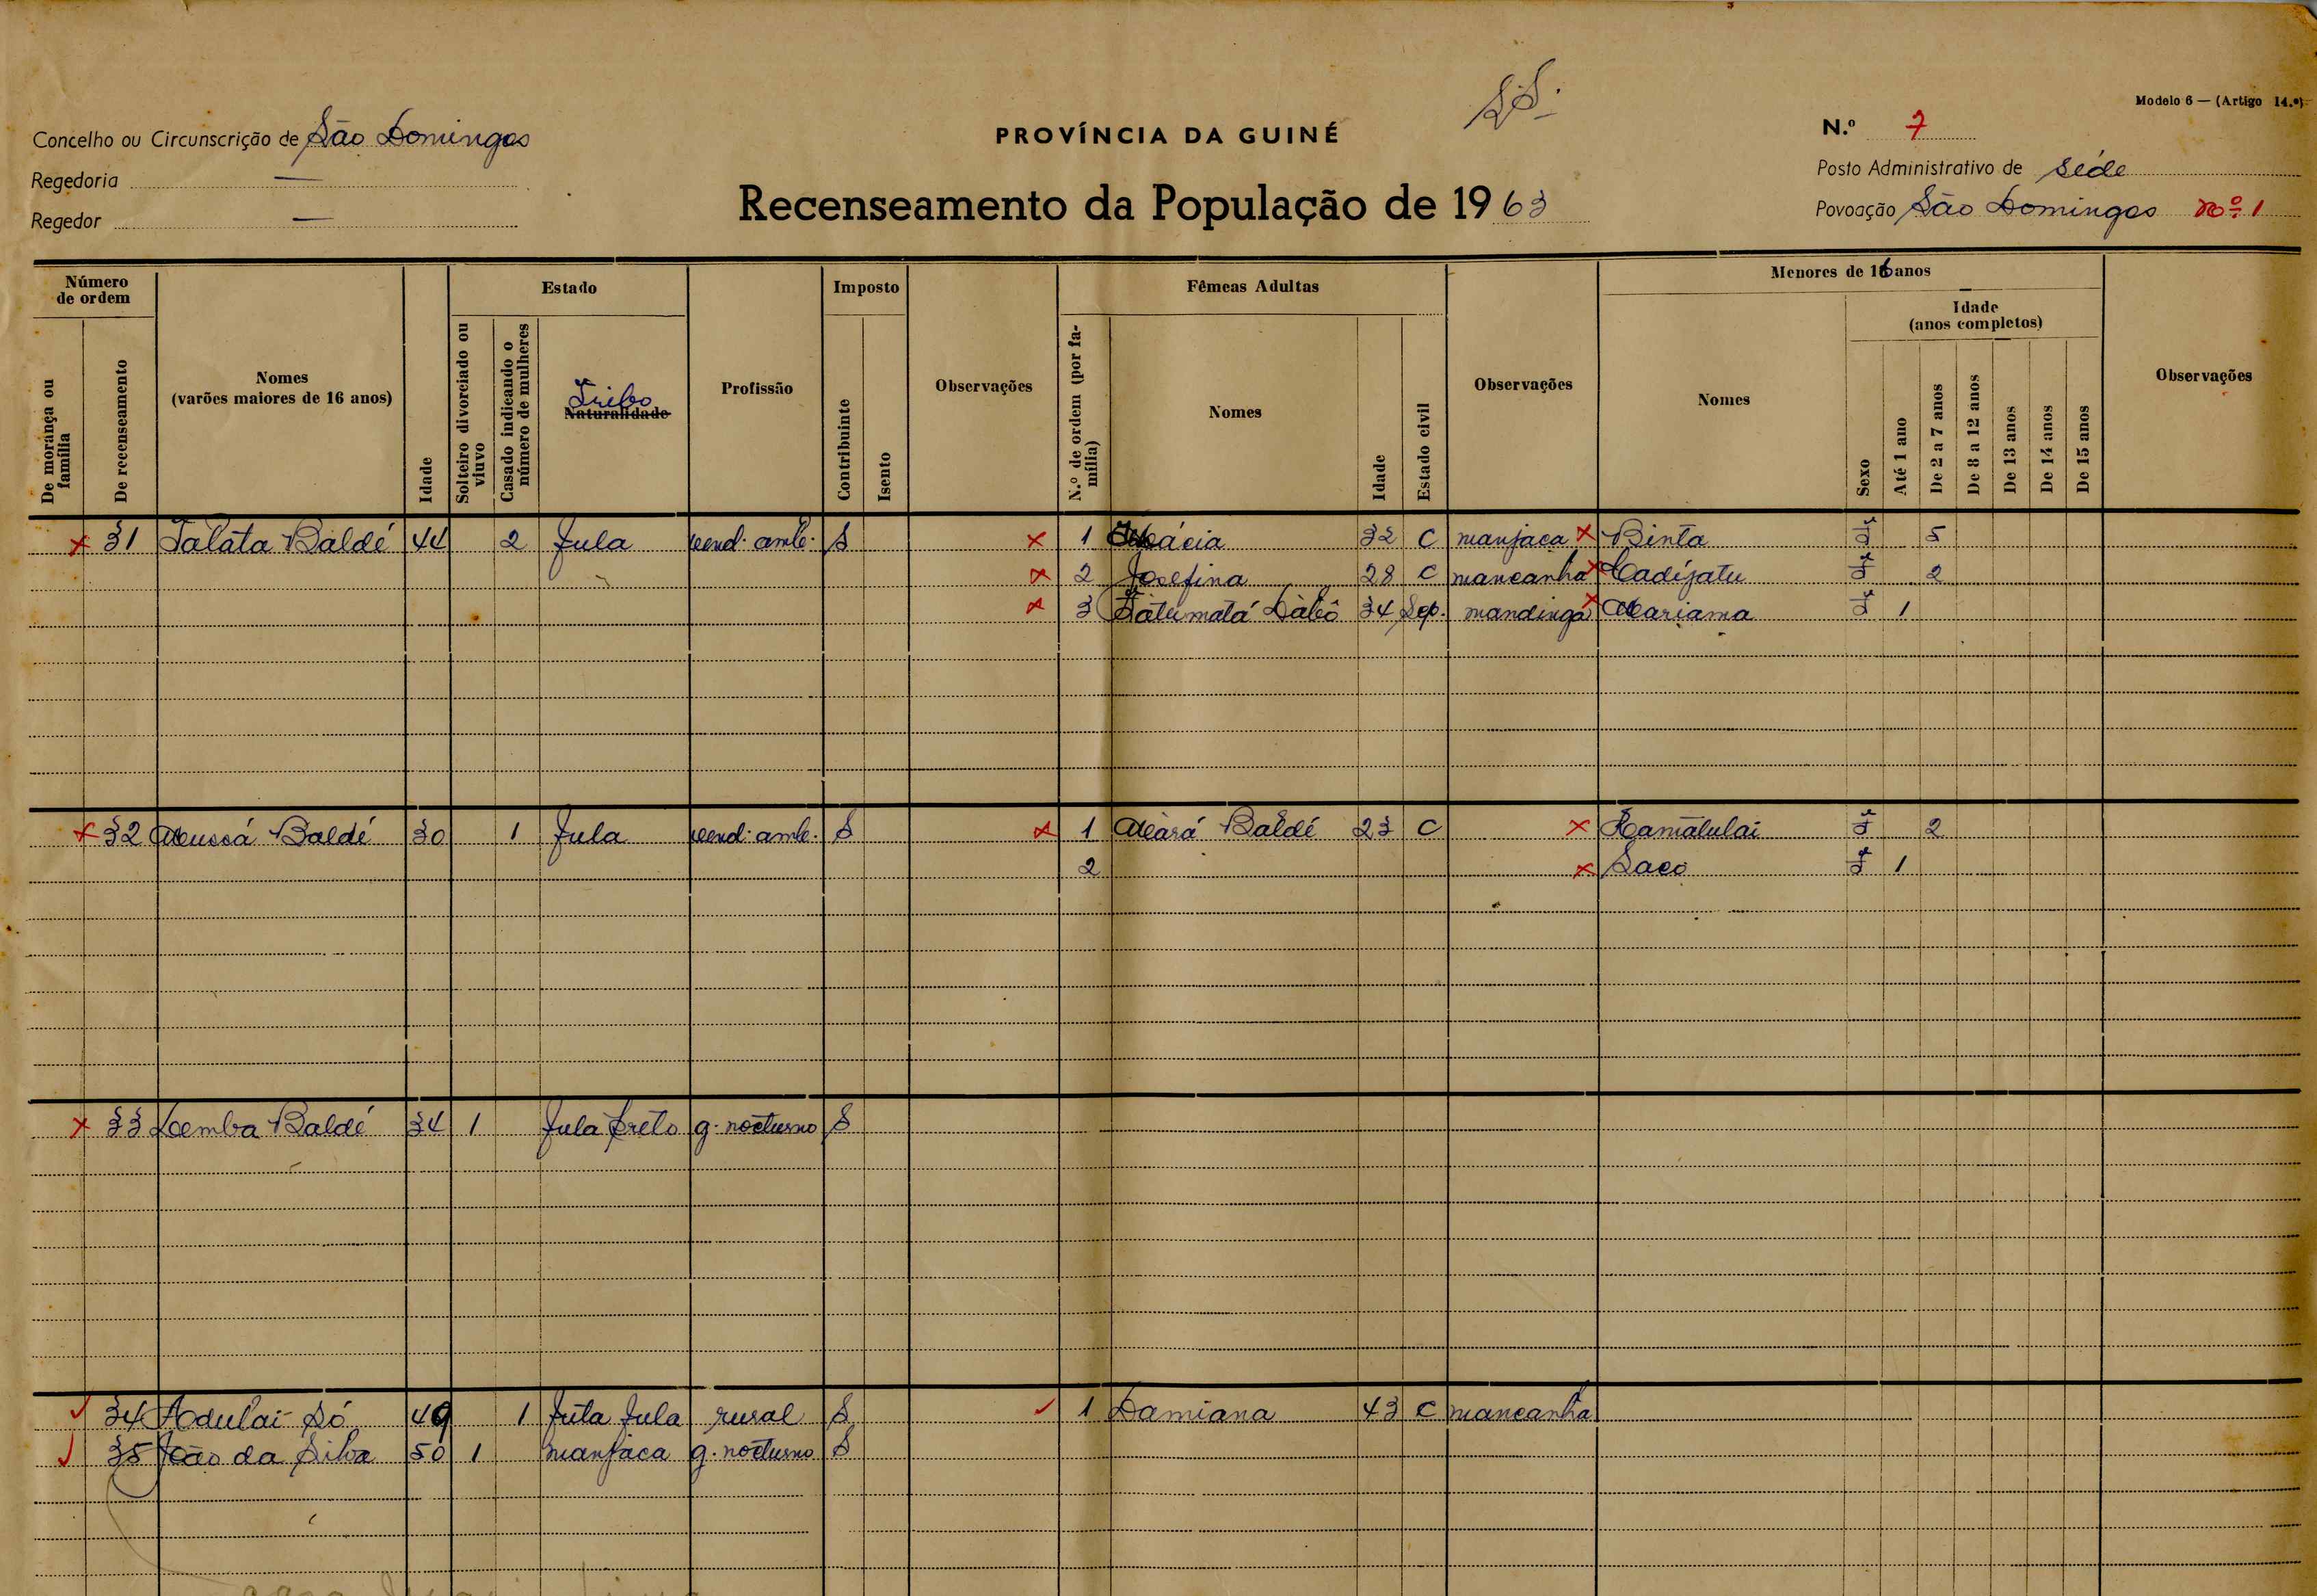 S.S.
Modelo 6 — (Artigo 14.º)
Concelho ou Circunscrição de São Domingos
PROVÍNCIA DA GUINÉ
N.º 7
Regedoria —
Posto Administrativo de séde
Regedor —
Recenseamento da População de 1963
Povoação São Domingos nº 1
Número de ordem
De morança ou família
De recenseamento
Nomes
(varões maiores de 16 anos)
Idade
Estado
Solteiro divorciado ou viuvo
Casado indicando o número de mulheres
Tribo
Naturalidade
Profissão
Imposto
Contribuinte
Isento
Observações
Fêmeas Adultas
N.º de ordem (por família)
Nomes
Idade
Estado civil
Observações
Menores de 16 anos
Nomes
Sexo
Idade
(anos completos)
Até 1 ano
De 2 a 7 anos
De 8 a 12 anos
De 13 anos
De 14 anos
De 15 anos
Observações
x 31 Talata Baldé 44 2 fula vend. amb. S x 1 32 C manjaca x Binta F 5
x 2 Josefina 28 C mancanha x Cadijatu F 2
x 3 Fatumatá Dabó 34 Sep. mandinga x Mariama F 1
x 32 Mussá Baldé 30 1 fula vend. amb. S x 1 Mará Baldé 23 C x Ramatulai F 2
2 x Saco F 1
x 33 Demba Baldé 34 1 fula preto g. nocturno S
34 Adulai Só 49 1 futa fula rural S 1 Damiana 43 C mancanha
35 João da Silva 50 1 manjaca g. nocturno S